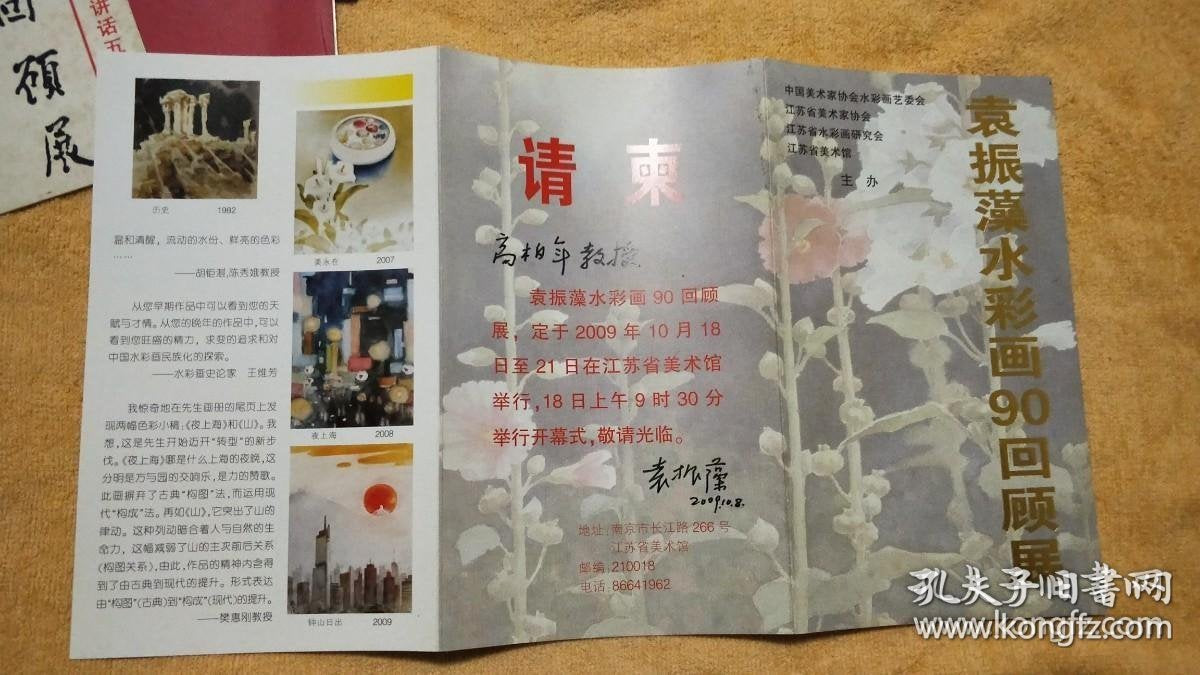 回
顾
展
讲话五
历史 1982
温和清醒，流动的水份、鲜亮的色彩
……
——胡钜湛,陈秀娥教授
从您早期作品中可以看到您的天
赋与才情。从您的晚年的作品中,可以
看到您旺盛的精力，求变的追求和对
中国水彩画民族化的探索。
——水彩画史论家 王维芳
我惊奇地在先生画册的尾页上发
现两幅色彩小稿:《夜上海》和《山》。我
想，这是先生开始迈开“转型”的新步
伐。《夜上海》哪是什么上海的夜晚,这
分明是方与园的交响乐,是力的赞歌。
此画摒弃了古典“构图”法,而运用现
代“构成”法。再如《山》,它突出了山的
律动。这种列动暗合着人与自然的生
命力，这幅减弱了山的主次前后关系
(构图关系),由此,作品的精神内含得
到了由古典到现代的提升。形式表达
由“构图”(古典)到“构成”(现代)的提升。
——樊惠刚教授
美永在 2007
夜上海 2008
钟山日出 2009
请柬
高柏年教授
袁振藻水彩画90回顾
展，定于2009年10月18
日至21日在江苏省美术馆
举行,18日上午9时30分
举行开幕式,敬请光临。
袁振藻
2009.10.8.
地址:南京市长江路266号
江苏省美术馆
邮编:210018
电话:86641962
中国美术家协会水彩画艺委会
江苏省美术家协会
江苏省水彩画研究会
江苏省美术馆
主办
袁振藻水彩画90回顾展
孔夫子旧书网
www.kongfz.com